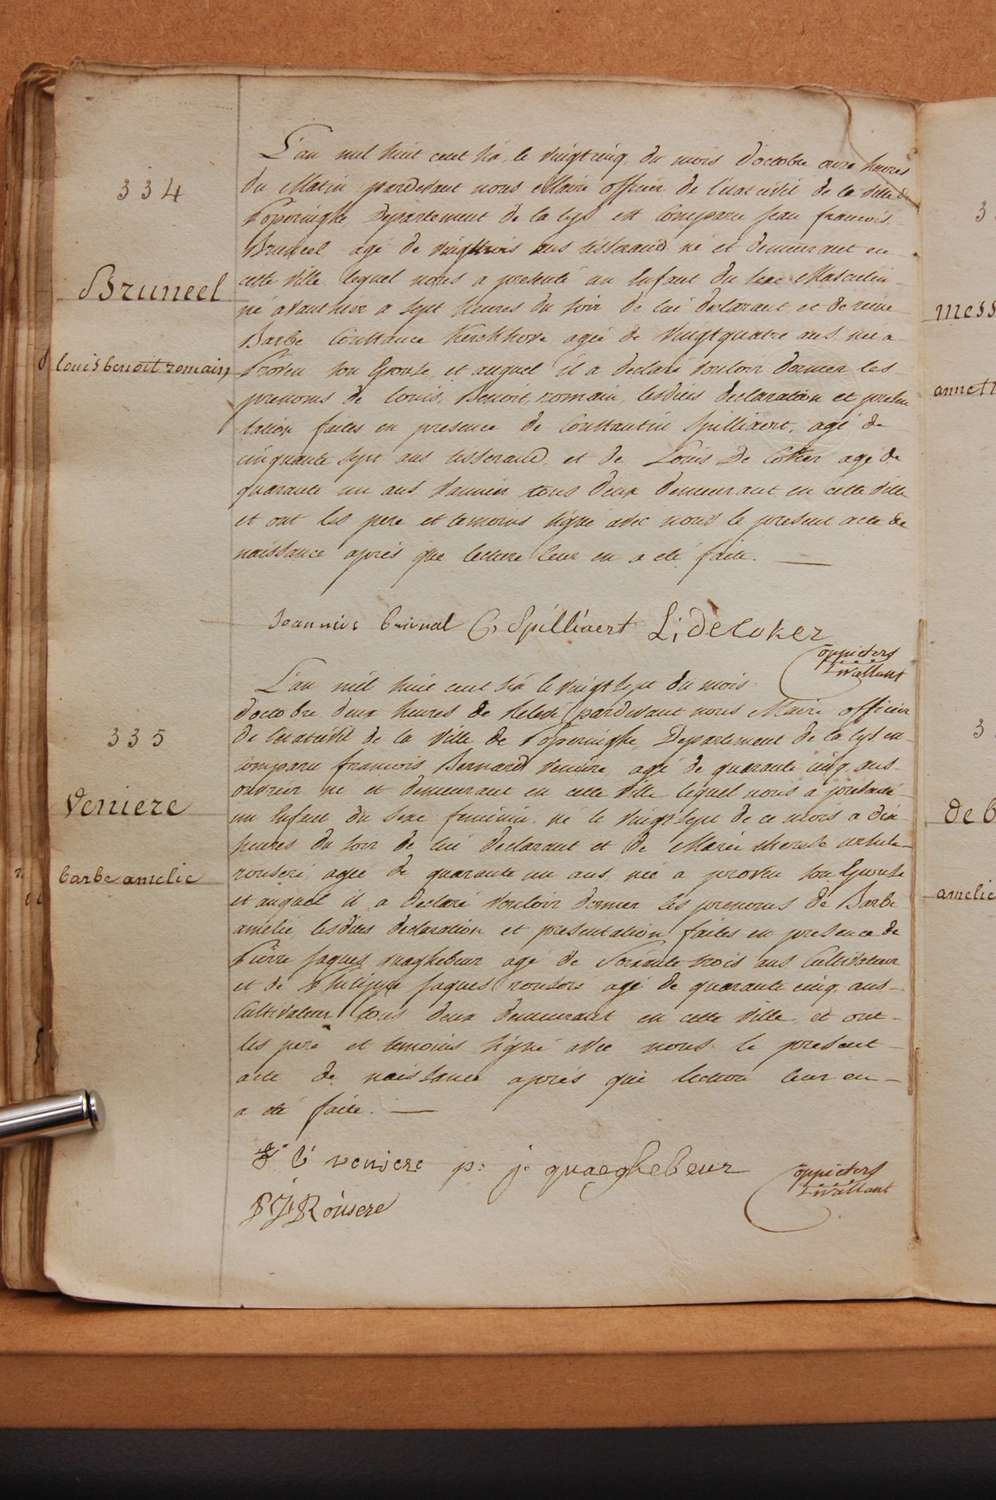 334
Bruneel
louis benoit romain
L'an mil huit cent six, le vingt cinq du mois d'octobre onze heures
du Matin pardevant nous Maire officier de l'état civil de la ville de
Poperinghe Departement de la Lys est comparu jean francois
Bruneel agé de vingt trois ans tisserand né et demeurant en
cette ville lequel nous a presenté un Enfant du sexe Masculin
né avant hier a sept heures du soir de lui declarant et de
Barbe Constance Kerckhove agée de vingt quatre ans née a
Proven son Epouse et auquel il a declaré vouloir donner les
prenoms de louis, Benoit, romain, lesdites declaration et presen
tation faites en presence de Constantin Spilliaert, agé de
cinquante sept ans tisserand et de Louis De Coker agé de
quarante un ans vannier tous deux demeurant en cette ville
et ont les pere et temoins signé avec nous le present acte de
naissance aprés que lecture leur en a eté faite.
C, Spilliaert L; de Coker
335
Veniere
barbe amelie
L'an mil huit cent six le vingt sept du mois
d'octobre deux heures de pardevant nous Maire officier
de l'état civil de la ville de Poperinghe Departement de la Lys est
comparu francois Bernard Veniere agé de quarante cinq ans
ouvrier né et demeurant en cette ville lequel nous a presenté
un Enfant du sexe feminin né le vingt sept de ce mois a dix
heures du soir de lui declarant et de Marie therese
rousere agée de quarante un ans née a proven son Epouse
et auquel il a declaré vouloir donner les prenoms de Barbe
amelie lesdites declaration et presentation faites en presence de
Pierre jaques quaghebeur agé de soixante trois ans Cultivateur
et de Philippe jaques rousere agé de quarante cinq ans
Cultivateur tous deux demeurant en cette ville et ont
les pere et temoins signé avec nous le present
acte de naissance aprés que lecture leur en
a eté faite.
veniere p: j: quaeghebeur
P J Rousere
mess
annett
de b
amelie